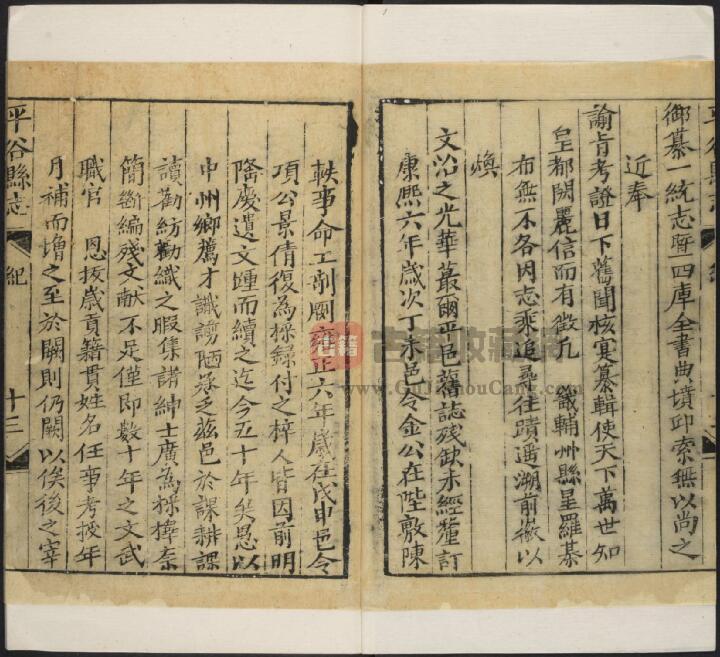 御纂一統志暨四庫全書典墳邱索無以尚之
近奉
諭旨考證日下舊聞核實纂輯使天下萬世知
皇都閎麗信而有徵凡 畿輔州縣星羅棊
布無不各因志乘追尋往蹟遥溯前徽以
煥
文治之光華蕞爾平邑舊誌残缺未經釐訂
康熙六年歲次丁未邑令金公在陛敷陳
軼事命工剞劂雍正六年歲在戊申邑令
項公景倩復為採録付之梓人皆因前明
隆慶遺文踵而續之迄今五十年矣愚以
中州鄉薦才譾謭陋承乏兹邑於課耕課
讀勸紡勸織之暇集諸紳士廣為採擇柰
簡斷編殘文献不足僅即数十年之文武
職官 恩拔歲貢籍貫姓名任事考授年
月補而增之至於闕則仍闕以俟後之宰
平谷縣志
紀
十三
古籍收藏
www.GuJiShouCang.com